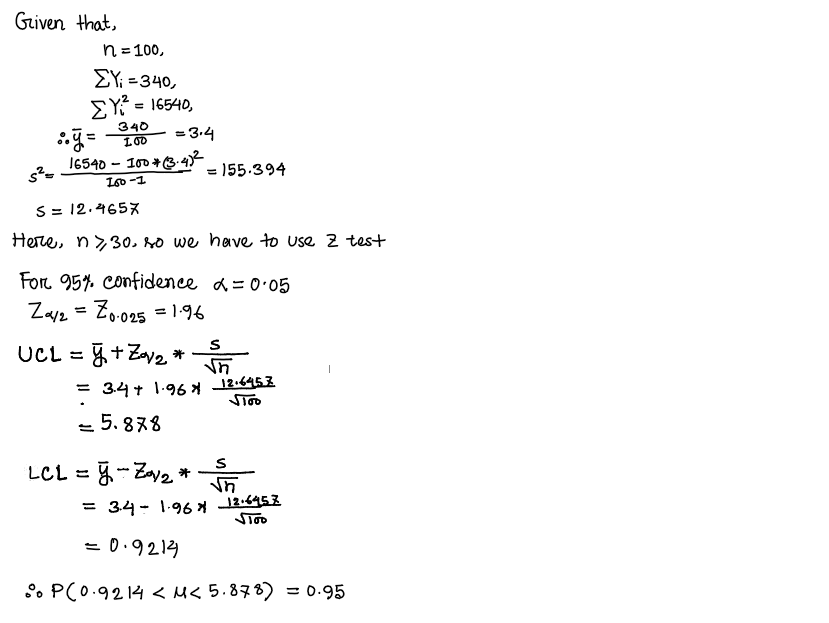 Given that,
n = 100,
ΣYi = 340,
ΣYi² = 16540,
∴ ȳ = 340/100 = 3.4
s² = (16540 - 100*(3.4)²)/(100-1) = 155.394
s = 12.4657
Here, n ≥ 30, so we have to use z test
For 95% confidence α = 0.05
Zα/2 = Z0.025 = 1.96
UCL = ȳ + Zα/2 * s/√n
= 3.4 + 1.96 * 12.6457/√100
= 5.878
LCL = ȳ - Zα/2 * s/√n
= 3.4 - 1.96 * 12.6457/√100
= 0.9214
∴ P(0.9214 < μ < 5.878) = 0.95